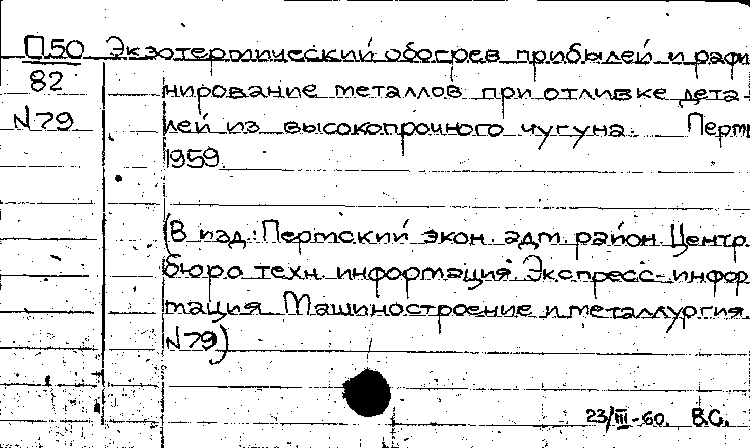 П50 Экзотермический обогрев прибылей и рафи
82 нирование металлов при отливке дета-
N79 лей из высокопрочного чугуна. Перм
1959.
(В изд.: Пермский экон. адм. район Центр.
бюро техн. информация. Экспресс-инфор
мация Машиностроение и металлургия
N79)
23/III-60. В.С.